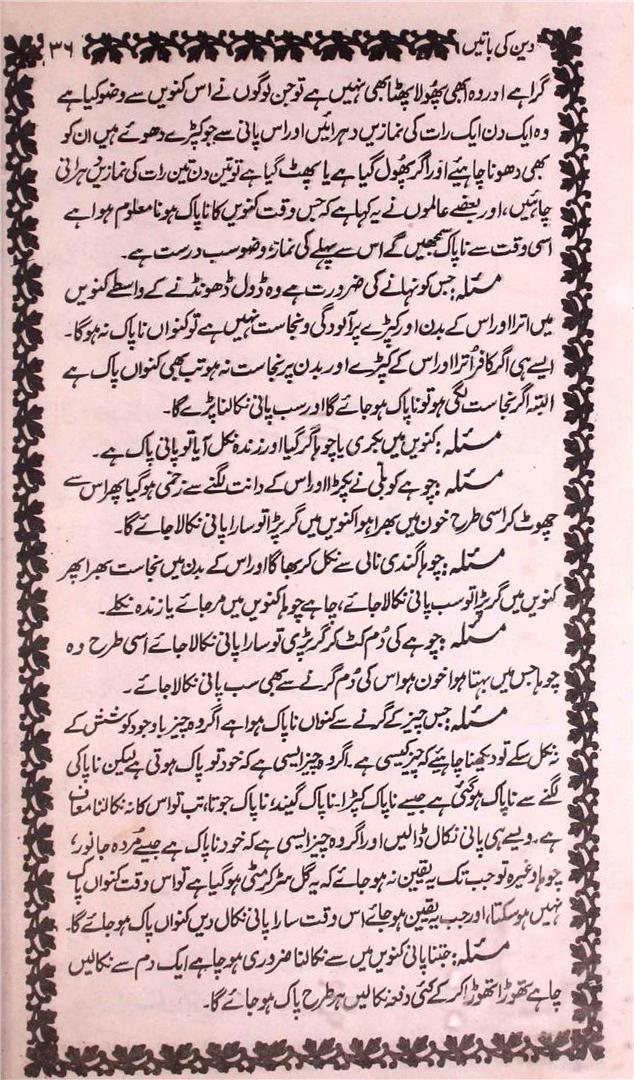 دین کی باتیں ۳۶
گرا ہے اور وہ ابھی پھُولا پھٹا بھی نہیں ہے تو جن لوگوں نے اس کنویں سے وضو کیا ہے
وہ ایک دن ایک رات کی نمازیں دہرائیں اور اس پانی سے جو کپڑے دھوئے ہیں ان کو
بھی دھونا چاہیئے اور اگر پھُول گیا ہے یا پھٹ گیا ہے تو تین دن تین رات کی نمازیں دُہرانی
چاہئیں، اور بعضے عالموں نے یہ کہا ہے کہ جس وقت کنویں کا ناپاک ہونا معلوم ہوا ہے
اسی وقت سے ناپاک سمجھیں گے اس سے پہلے کی نماز وضو سب درست ہے۔
مسئلہ: جس کو نہانے کی ضرورت ہے وہ ڈول ڈھونڈنے کے واسطے کنویں
میں اترا اور اس کے بدن اور کپڑے پر آلودگی ونجاست نہیں ہے تو کنواں ناپاک نہ ہوگا۔
ایسے ہی اگر کافر اُترا اور اس کے کپڑے اور بدن پر نجاست نہ ہو تب بھی کنواں پاک ہے
البتہ اگر نجاست لگی ہو تو ناپاک ہو جائے گا اور سب پانی نکالنا پڑے گا۔
مسئلہ: کنویں میں بکری یا چوہا گر گیا اور زندہ نکل آیا تو پانی پاک ہے۔
مسئلہ: چوہے کو بلی نے پکڑا اور اس کے دانت لگنے سے زخمی ہو گیا پھر اس سے
چھوٹ کر اسی طرح خون میں بھرا ہوا کنویں میں گر پڑا تو سارا پانی نکالا جائے گا۔
مسئلہ: چوہا گندی نالی سے نکل کر بھاگا اور اس کے بدن میں نجاست بھرا پھر
کنویں میں گر پڑا تو سب پانی نکالا جائے، چاہے چوہا کنویں میں مر جائے یا زندہ نکلے۔
مسئلہ: چوہے کی دُم کٹ کر گر پڑی تو سارا پانی نکالا جائے اسی طرح وہ
چوہا جس میں بہتا ہوا خون ہو اس کی دُم گرنے سے بھی سب پانی نکالا جائے۔
مسئلہ: جس چیز کے گرنے سے کنواں ناپاک ہوا ہے اگر وہ چیز باوجود کوشش کے
نہ نکل سکے تو دیکھنا چاہیئے کہ چیز کیسی ہے۔ اگر وہ چیز ایسی ہے کہ خود تو پاک ہوتی ہے لیکن ناپاکی
لگنے سے ناپاک ہو گئی ہے جیسے ناپاک کپڑا۔ ناپاک گیند، ناپاک جوتا، تب تو اس کا نہ نکالنا معاف
ہے۔ ویسے ہی پانی نکال ڈالیں اور اگر وہ چیز ایسی ہے کہ خود ناپاک ہے جیسے مُردہ جانور،
چوہا وغیرہ تو جب تک یہ یقین نہ ہو جائے کہ یہ گل سڑ کر مٹی ہو گیا ہے تو اس وقت کنواں پاک
نہیں ہو سکتا، اور جب یقین ہو جائے اس وقت سارا پانی نکال دیں کنواں پاک ہو جائے گا۔
مسئلہ: جتنا پانی کنویں میں سے نکالنا ضروری ہو چاہے ایک دم سے نکالیں
چاہے تھوڑا تھوڑا کر کے کئی دفعہ نکالیں ہر طرح پاک ہو جائے گا۔